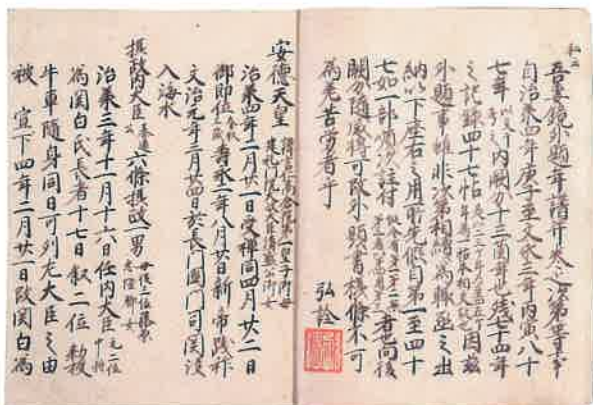 吾妻鏡外題年譜并巻之次第事
自治承四年庚子至文永三年丙寅八十
七年内闕分十三箇年也残七十四年
之記録四十七帖 因茲
外題事雖非次第相續為輙函之出
納以下座右之用所先假自第一至四十
七如一部 注付 者也向後
闕分随感得可改外題書様條不可
為老苦労者乎
弘詮
安徳天皇
治承四年二月廿一日受禅同四月廿二日
御即位 壽永二年八月廿日新帝践祚
文治元年三月廿四日於長門國門司関没
入海水
摂政内大臣 六條摂政一男
治承三年十一月十六日任内大臣
為関白氏長者十七日叙二位勅授
牛車随身同日可列左大臣之由
被宣下四年二月廿一日改関白為